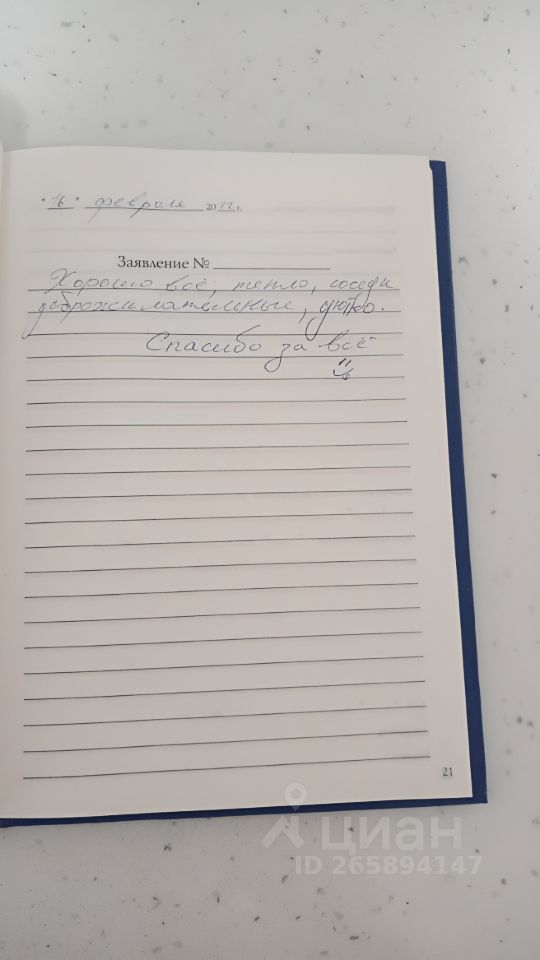 "16" февраля 2022 г.
Заявление №
Хорошо всё, тепло, соседи
доброжилательные, уютно.
Спасибо за всё
21
циан
ID 265894147